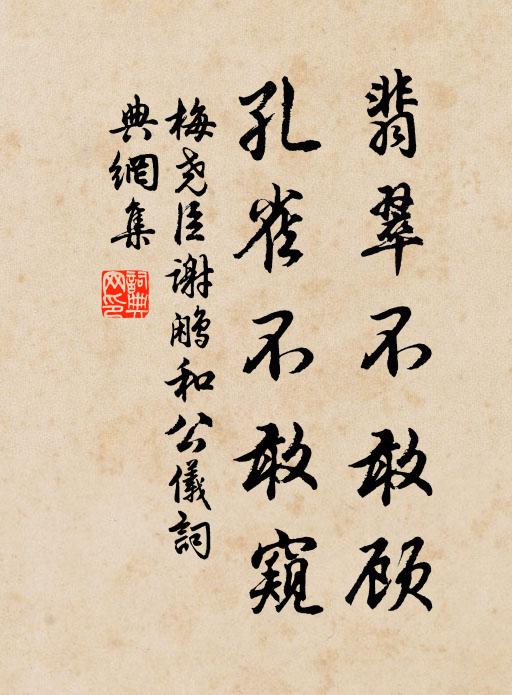 翡翠不敢顾
孔雀不敢窥
梅尧臣谢鹇和公儀詞
典網集
詞典网印